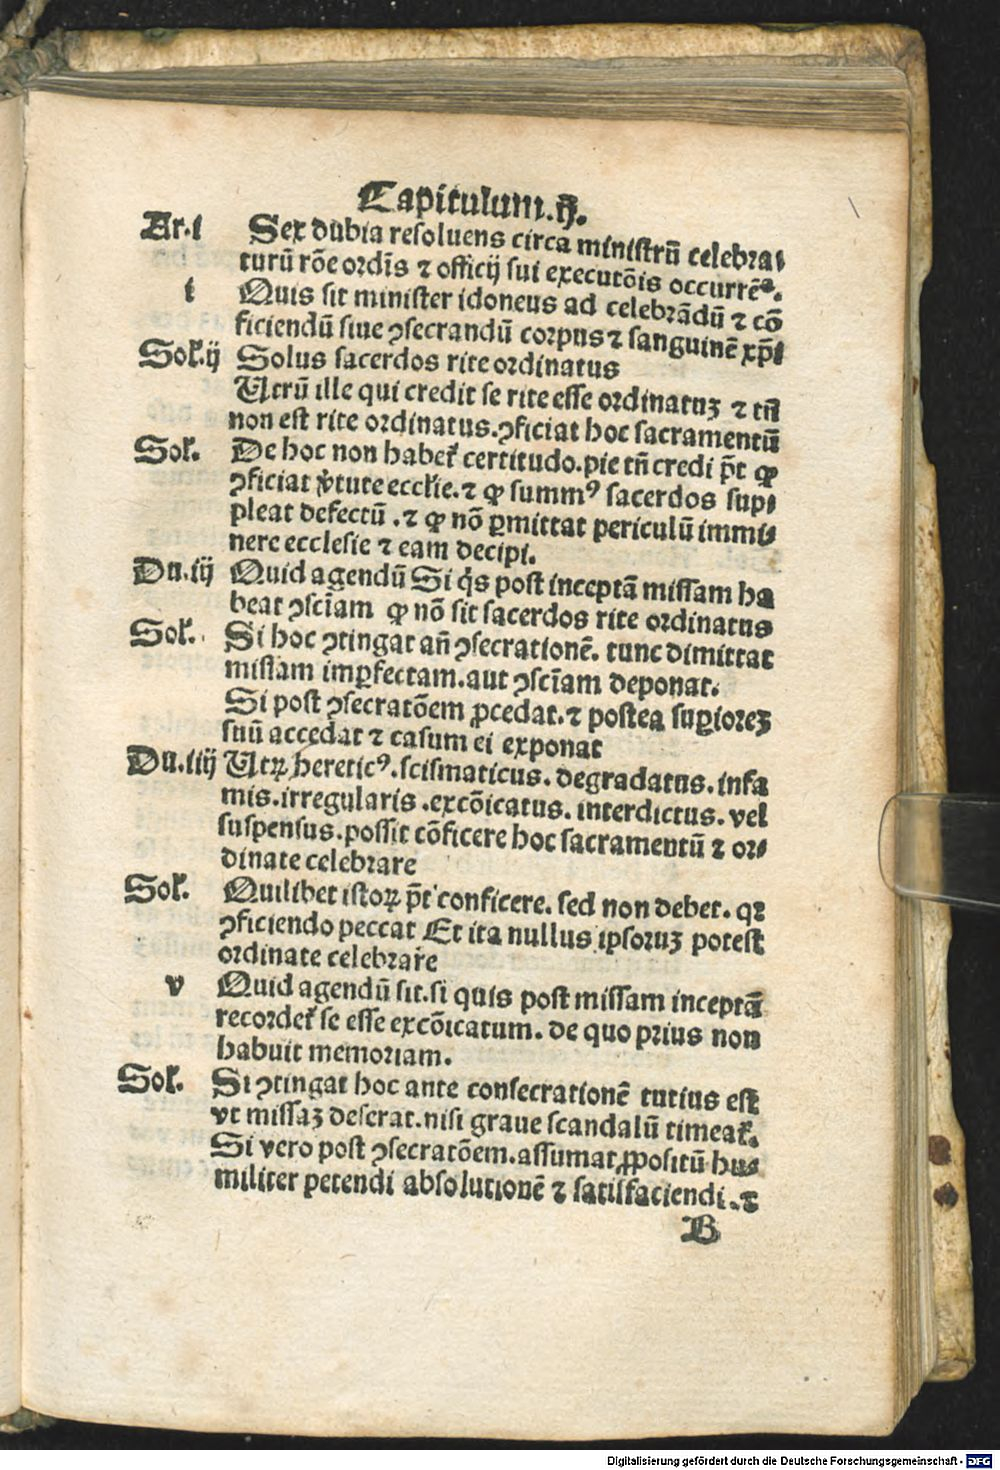 Capitulum.ij.
Ar.i Sex dubia resoluens circa ministrū celebra⸗
turū rōe ordīs ⁊ officij sui executōis occurrētᵃ.
i Quis sit minister idoneus ad celebrādū ⁊ cō
ficiendū siue ꝯsecrandū corpus ⁊ sanguinē xp̄i
Sol.ij Solus sacerdos rite ordinatus
Utrū ille qui credit se rite esse ordinatuꝫ ⁊ tn̄
non est rite ordinatus.ꝯficiat hoc sacramentū
Sol. De hoc non habet̉ certitudo.pie tn̄ credi pōt ꝙ
ꝯficiat v̉tute eccl̉ie.⁊ ꝙ summꝰ sacerdos sup⸗
pleat defectū.⁊ ꝙ nō ꝑmittat periculū immi⸗
nere ecclesie ⁊ eam decipi.
Du.iij Quid agendū Si q̇s post inceptā missam ha
beat ꝯsciam ꝙ nō sit sacerdos rite ordinatus
Sol. Si hoc ꝯtingat an̄ ꝯsecrationē. tunc dimittat
missam imꝑfectam.aut ꝯsciam deponat.
Si post ꝯsecratōem ꝓcedat.⁊ postea suꝑioreꝫ
suū accedat ⁊ casum ei exponat
Du.iiij Utꝝ hereticꝰ.scismaticus.degradatus.infa
mis.irregularis.excōicatus.interdictus.vel
suspensus.possit cōficere hoc sacramentū ⁊ or⸗
dinate celebrare
Sol. Quilibet istoꝝ pōt conficere.sed non debet.qꝛ
ꝯficiendo peccat Et ita nullus ipsoruꝫ potest
ordinate celebrare
v Quid agendū sit.si quis post missam inceptā
recordet̉ se esse excōicatum.de quo prius non
habuit memoriam.
Sol. Si ꝯtingat hoc ante consecrationē tutius est
vt missaꝫ deserat.nisi graue scandalū timeat̉.
Si vero post ꝯsecratōem.assumat ꝓpositū hu⸗
militer petendi absolutionē ⁊ satisfaciendi.⁊
B
Digitalisierung gefördert durch die Deutsche Forschungsgemeinschaft - DFG